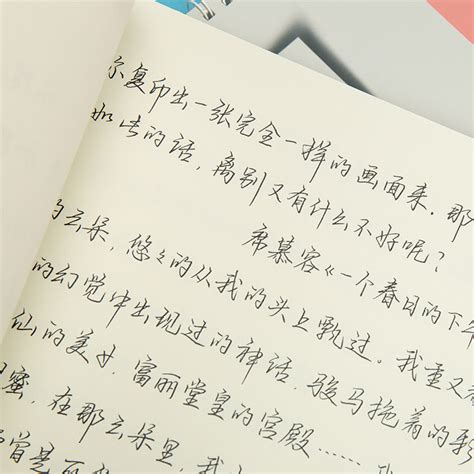 你复印出一张完全一样的画面来.那
如此的话,离别又有什么不好呢?
席慕容《一个春日的下午
的云朵,悠々的从我的头上飘过.我重又看
的幻觉中出现过的神话.骏马拖着的
仙的美女,富丽堂皇的宫殿……
蜜,在那云朵里,我
曾是